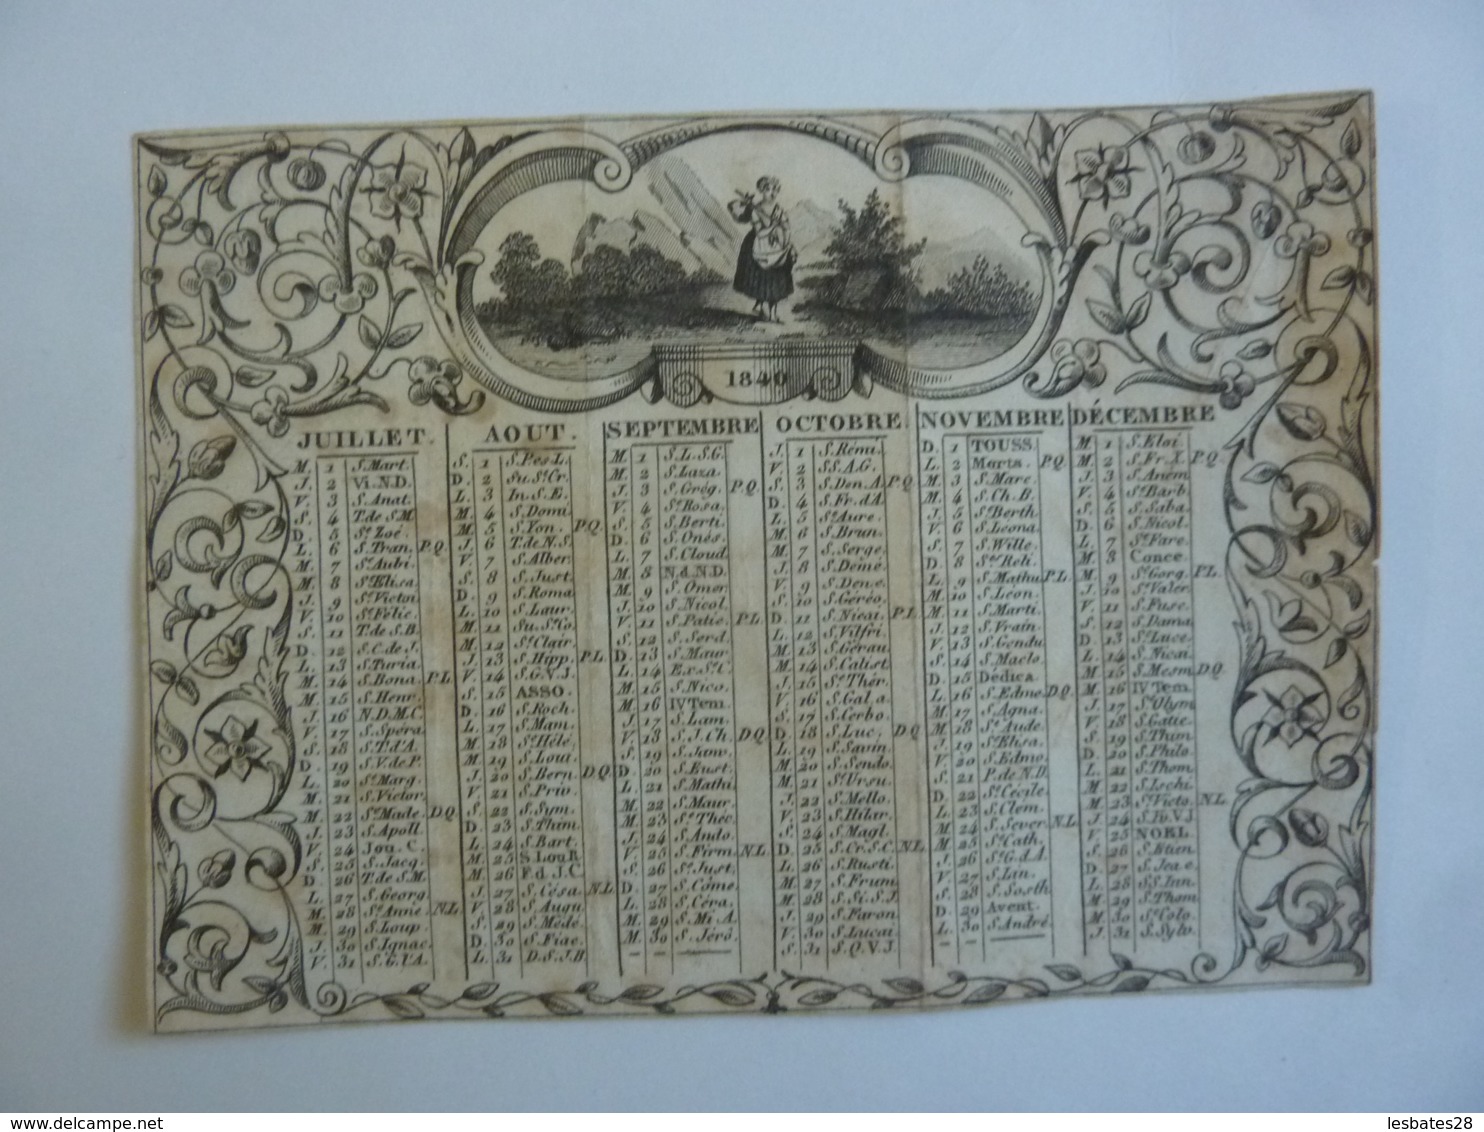 1840
JUILLET.
M. 1 S. Mart.
J. 2 Vi. N.D.
V. 3 S. Anat.
S. 4 T. de S.M.
D. 5 Ste Zoé
L. 6 S. Tran. P.Q.
M. 7 Ste Aubi.
M. 8 Ste Elisa.
J. 9 S. Victon
V. 10 Ste Félic.
S. 11 T. de S.B.
D. 12 S.C. de J.
L. 13 S. Turia
M. 14 S. Bona. P.L.
M. 15 S. Henr.
J. 16 N.D.M.C.
V. 17 S. Spéra
S. 18 S.T. d'A.
D. 19 S.V. de P.
L. 20 Ste Marg.
M. 21 S. Victor.
M. 22 Ste Made. D.Q.
J. 23 S. Apoll.
V. 24 Jou. C.
S. 25 S. Jacq.
D. 26 T. de S.M.
L. 27 S. Georg.
M. 28 Ste Anne. N.L.
M. 29 S. Loup.
J. 30 S. Ignac.
V. 31 S.G. l'A.
AOUT.
S. 1 S. Pes-L.
D. 2 Su. Ste Cr.
L. 3 In. S.E.
M. 4 S. Domi
M. 5 S. Yon. P.Q.
J. 6 T. de N.S.
V. 7 S. Alber.
S. 8 S. Just.
D. 9 S. Roma
L. 10 S. Laur.
M. 11 Su. Ste Co.
M. 12 Ste Clair.
J. 13 S. Hipp. P.L.
V. 14 S.G.V.J.
S. 15 ASSO.
D. 16 S. Roch.
L. 17 S. Mam.
M. 18 Ste Hélè.
M. 19 S. Loui.
J. 20 S. Bern. D.Q.
V. 21 S. Priv.
S. 22 S. Sym.
D. 23 S. Thim.
L. 24 S. Bart.
M. 25 S. Lou R.
M. 26 F. d. J.C.
J. 27 S. Césa. N.L.
V. 28 S. Augu
S. 29 S. Médé.
D. 30 S. Fiac.
L. 31 D.S.J.B.
SEPTEMBRE
M. 1 S.L.S.G.
M. 2 S. Laza.
J. 3 S. Grég. P.Q.
V. 4 Ste Rosa.
S. 5 S. Berti.
D. 6 S. Onés.
L. 7 S. Cloud.
M. 8 N. d. N.D.
M. 9 S. Omer.
J. 10 S. Nicol.
V. 11 S. Patie. P.L.
S. 12 S. Serd.
D. 13 S. Maur.
L. 14 Ex. Ste C.
M. 15 S. Nico.
M. 16 IV Tem.
J. 17 S. Lam.
V. 18 S.J. Ch. D.Q.
S. 19 S. Janv.
D. 20 S. Eust.
L. 21 S. Mathi
M. 22 S. Maur.
M. 23 Ste Thèc.
J. 24 S. Ando.
V. 25 S. Firm. N.L.
S. 26 Ste Just.
D. 27 S. Côme.
L. 28 S. Céra.
M. 29 S. Mi. A.
M. 30 S. Jérô.
OCTOBRE.
J. 1 S. Rémi.
V. 2 S.S.A.G.
S. 3 S. Den. A. P.Q.
D. 4 S. Fr. d'A.
L. 5 Ste Aure.
M. 6 S. Brun.
M. 7 S. Serge.
J. 8 S. Démé.
V. 9 S. Den. e.
S. 10 S. Géréo.
D. 11 S. Nicai. P.L.
L. 12 S. Vilfri.
M. 13 S. Gérau.
M. 14 S. Calist.
J. 15 Ste Thér.
V. 16 S. Gal. a.
S. 17 S. Cerbo.
D. 18 S. Luc. D.Q.
L. 19 S. Savin.
M. 20 S. Sendo.
M. 21 Ste Ursu.
J. 22 S. Mello.
V. 23 S. Hilar.
S. 24 S. Magl.
D. 25 S. Cr. S.C. N.L.
L. 26 S. Rusti.
M. 27 S. Frum.
M. 28 S. Si. S.J.
J. 29 S. Faron.
V. 30 S. Lucai
S. 31 S.Q.V.J.
NOVEMBRE
D. 1 TOUSS.
L. 2 Morts. P.Q.
M. 3 S. Marc.
M. 4 S. Ch. B.
J. 5 Ste Berth
V. 6 S. Léona.
S. 7 S. Wille.
D. 8 Stes Reli.
L. 9 S. Mathu. P.L.
M. 10 S. Léon.
M. 11 S. Marti.
J. 12 S. Vrain.
V. 13 S. Gendu
S. 14 S. Maclo.
D. 15 Dédica.
L. 16 S. Edme. D.Q.
M. 17 S. Agna.
M. 18 Ste Aude.
J. 19 Ste Elisa.
V. 20 S. Edmo.
S. 21 P. de N.D.
D. 22 Ste Cécile
L. 23 S. Clem.
M. 24 S. Sever. N.L.
M. 25 Ste Cath.
J. 26 Ste G. d. A.
V. 27 S. Lin.
S. 28 S. Sosth
D. 29 Avent.
L. 30 S. André.
DÉCEMBRE
M. 1 S. Eloi
M. 2 S. Fr. X. P.Q.
J. 3 S. Anem
V. 4 Ste Barb.
S. 5 S. Saba.
D. 6 S. Nicol.
L. 7 Ste Fare.
M. 8 Conce.
M. 9 Ste Gorg. P.L.
J. 10 Ste Valer.
V. 11 S. Fusc.
S. 12 S. Dama
D. 13 Ste Luce.
L. 14 S. Nicai
M. 15 S. Mesm. D.Q.
M. 16 IV Tem.
J. 17 Ste Olym
V. 18 S. Gatie.
S. 19 S. Thim
D. 20 S. Philo.
L. 21 S. Thom.
M. 22 S. Ischi
M. 23 Ste Victo. N.L.
J. 24 S. Iv. V.J
V. 25 NOEL
S. 26 S. Etien
D. 27 S. Jea. e.
L. 28 S.S. Inn.
M. 29 S. Thom
M. 30 Ste Colo.
J. 31 S. Sylv.
lesbates28